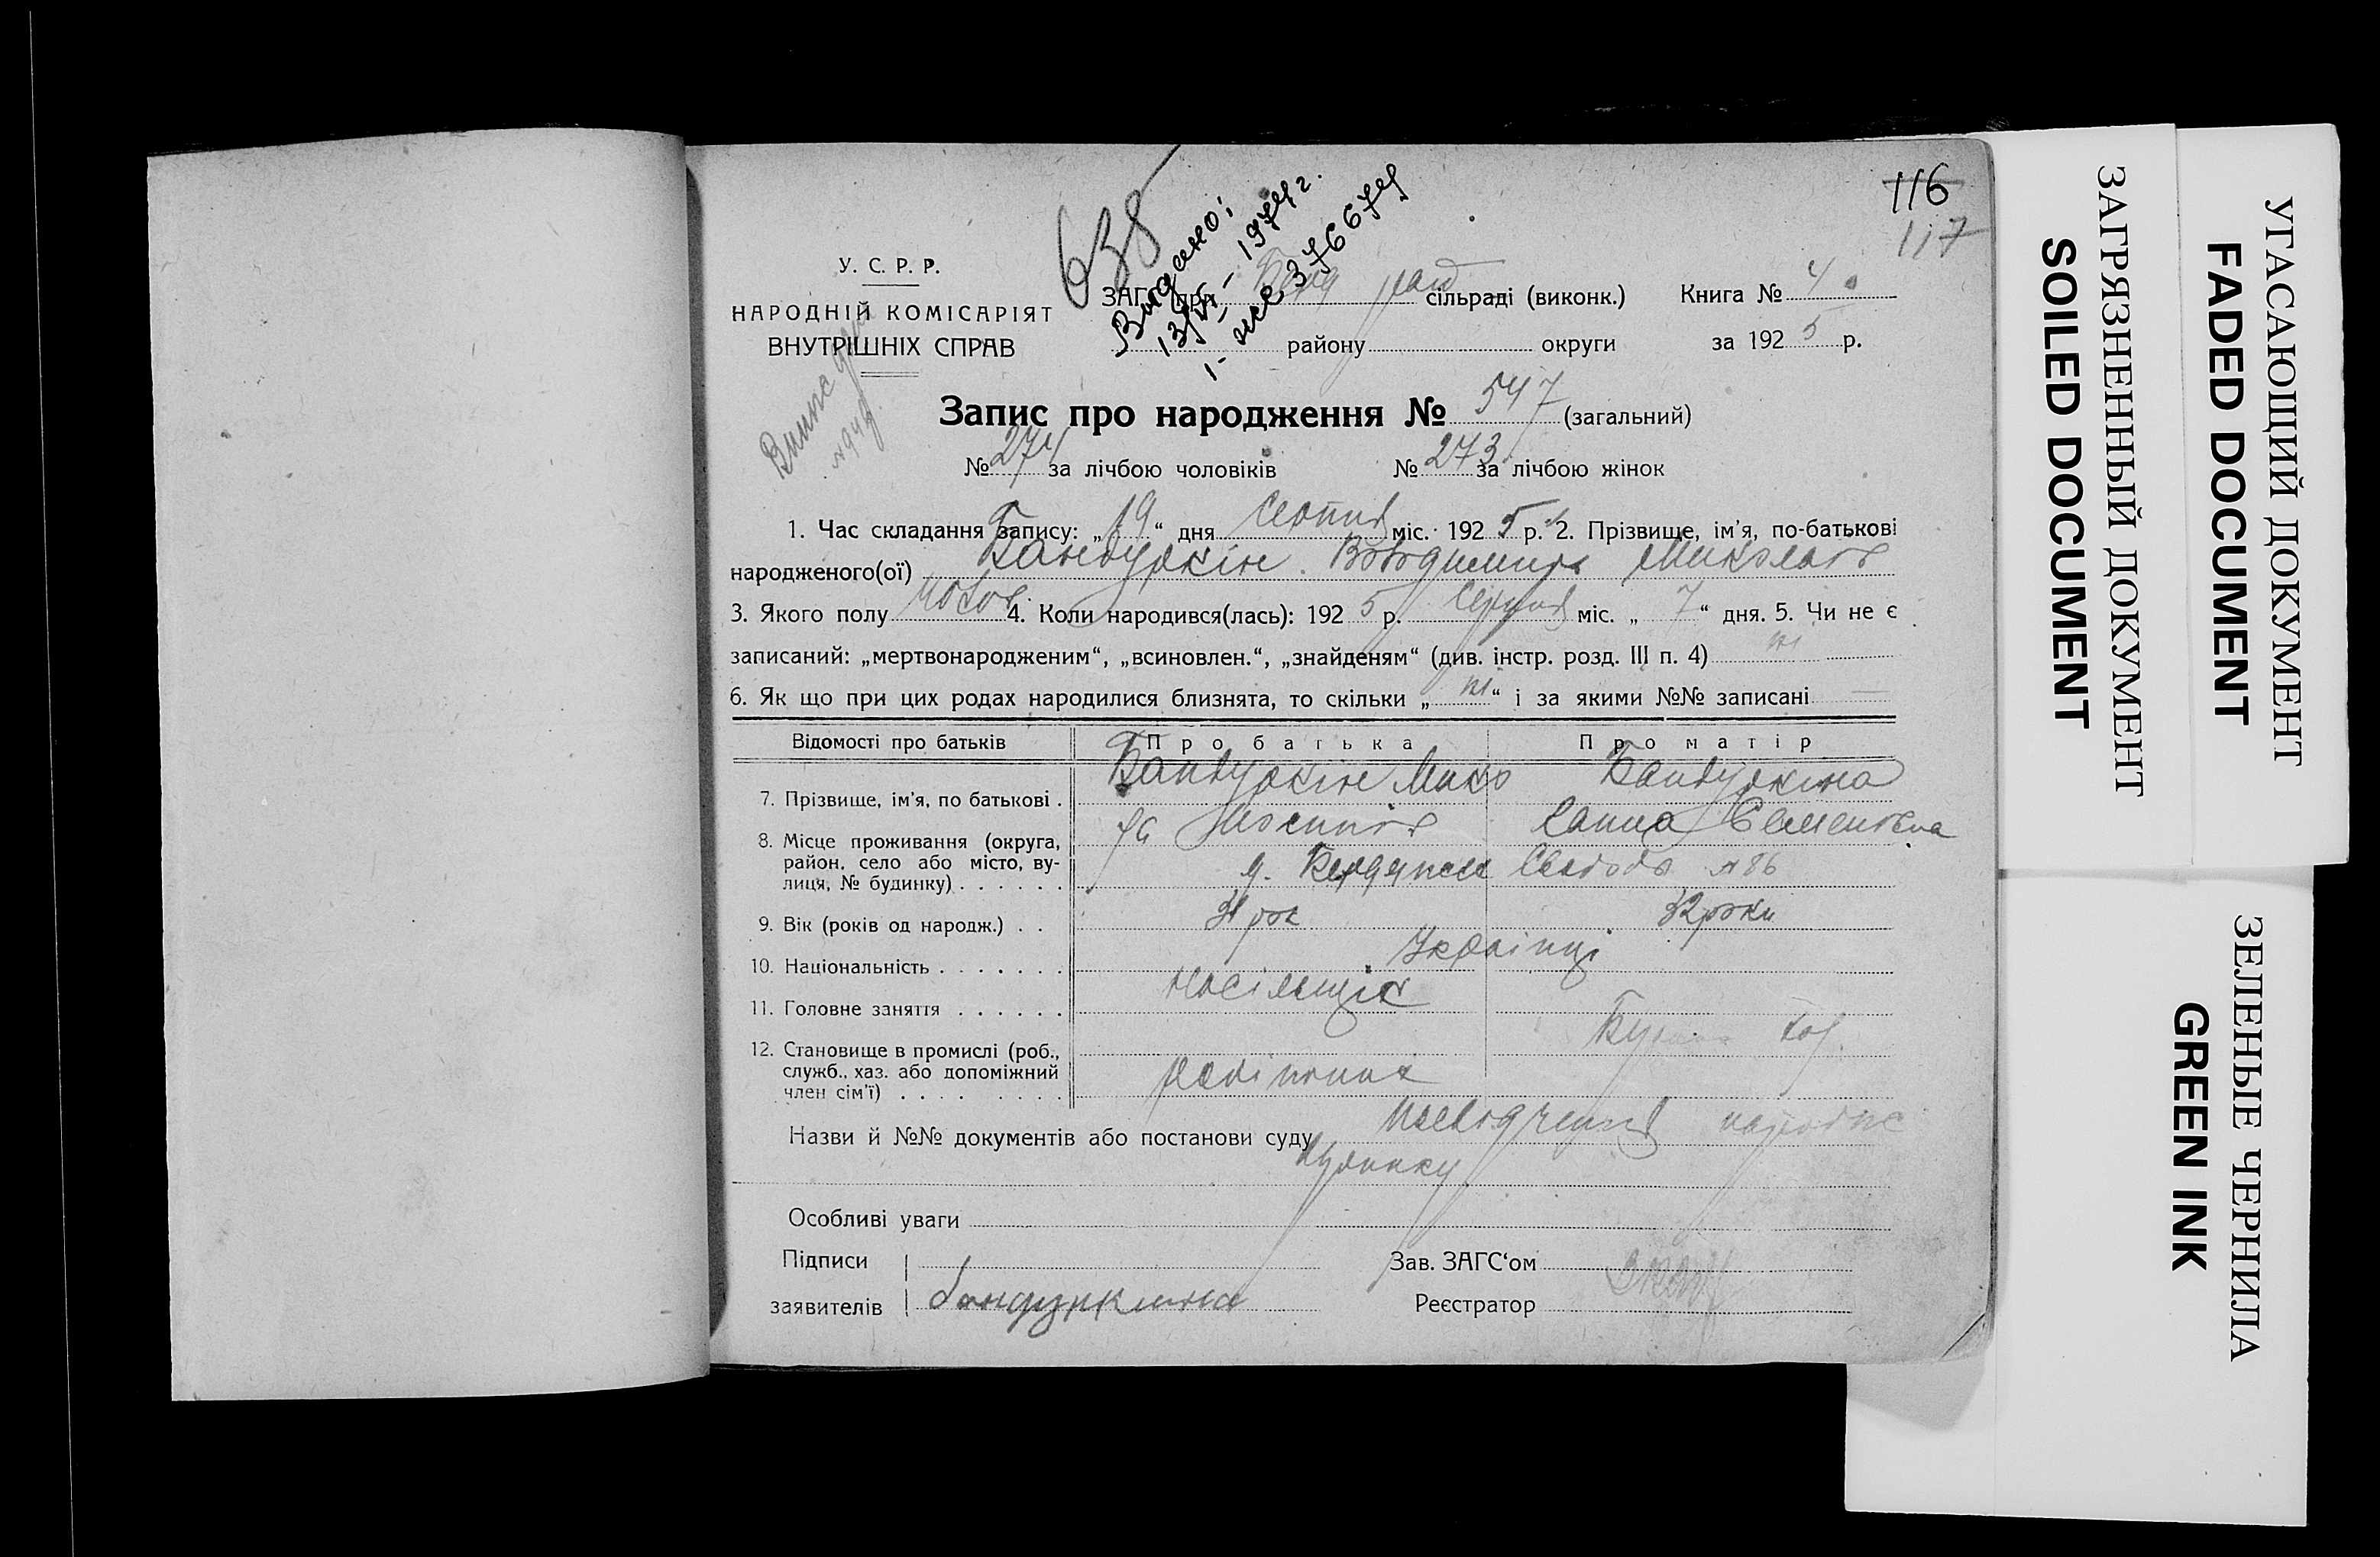 116
117
638
Видано:
1974 г.
376674
У. С. Р. Р.
НАРОДНІЙ КОМІСАРІЯТ
ВНУТРІШНІХ СПРАВ
ЗАГС при Берд сільраді (виконк.) Книга № 4
району округи за 1925 р.
Запис про народження № 547 (загальний)
№ 274 за лічбою чоловіків № 273 за лічбою жінок
1. Час складання запису: „19“ дня міс. 1925 р. 2. Прізвище, ім'я, по-батькові
народженого(ої) Бандуркін Володимир Миколаїв
3. Якого полу чолов. 4. Коли народився(лась): 1925 р. Серпня міс. „7“ дня. 5. Чи не є
записаний: „мертвонародженим“, „всиновлен.“, „знайденям“ (див. інстр. розд. III п. 4) ні
6. Як що при цих родах народилися близнята, то скільки „ні“ і за якими №№ записані —
Відомості про батьків Про батька Про матір
7. Прізвище, ім'я, по батькові . Бандуркін Мико Бандуркіна
8. Місце проживання (округа, Ганна Семенівна
район, село або місто, ву-
лиця, № будинку) . . . . . . Свободи № 86
9. Вік (років од народж.) . . 31 рік 32 роки
10. Національність . . . . . . . Українці
11. Головне заняття . . . . . . носільщік
12. Становище в промислі (роб.,
служб., хаз. або допоміжний
член сім'ї) . . . . . . . . . робітник
Назви й №№ документів або постанови суду посвідчення
Особливі уваги
Підписи Зав. ЗАГС'ом
заявителів бандуркина Реєстратор
ЗАГРЯЗНЕННЫЙ ДОКУМЕНТ
SOILED DOCUMENT
УГАСАЮЩИЙ ДОКУМЕНТ
FADED DOCUMENT
ЗЕЛЕНЫЕ ЧЕРНИЛА
GREEN INK